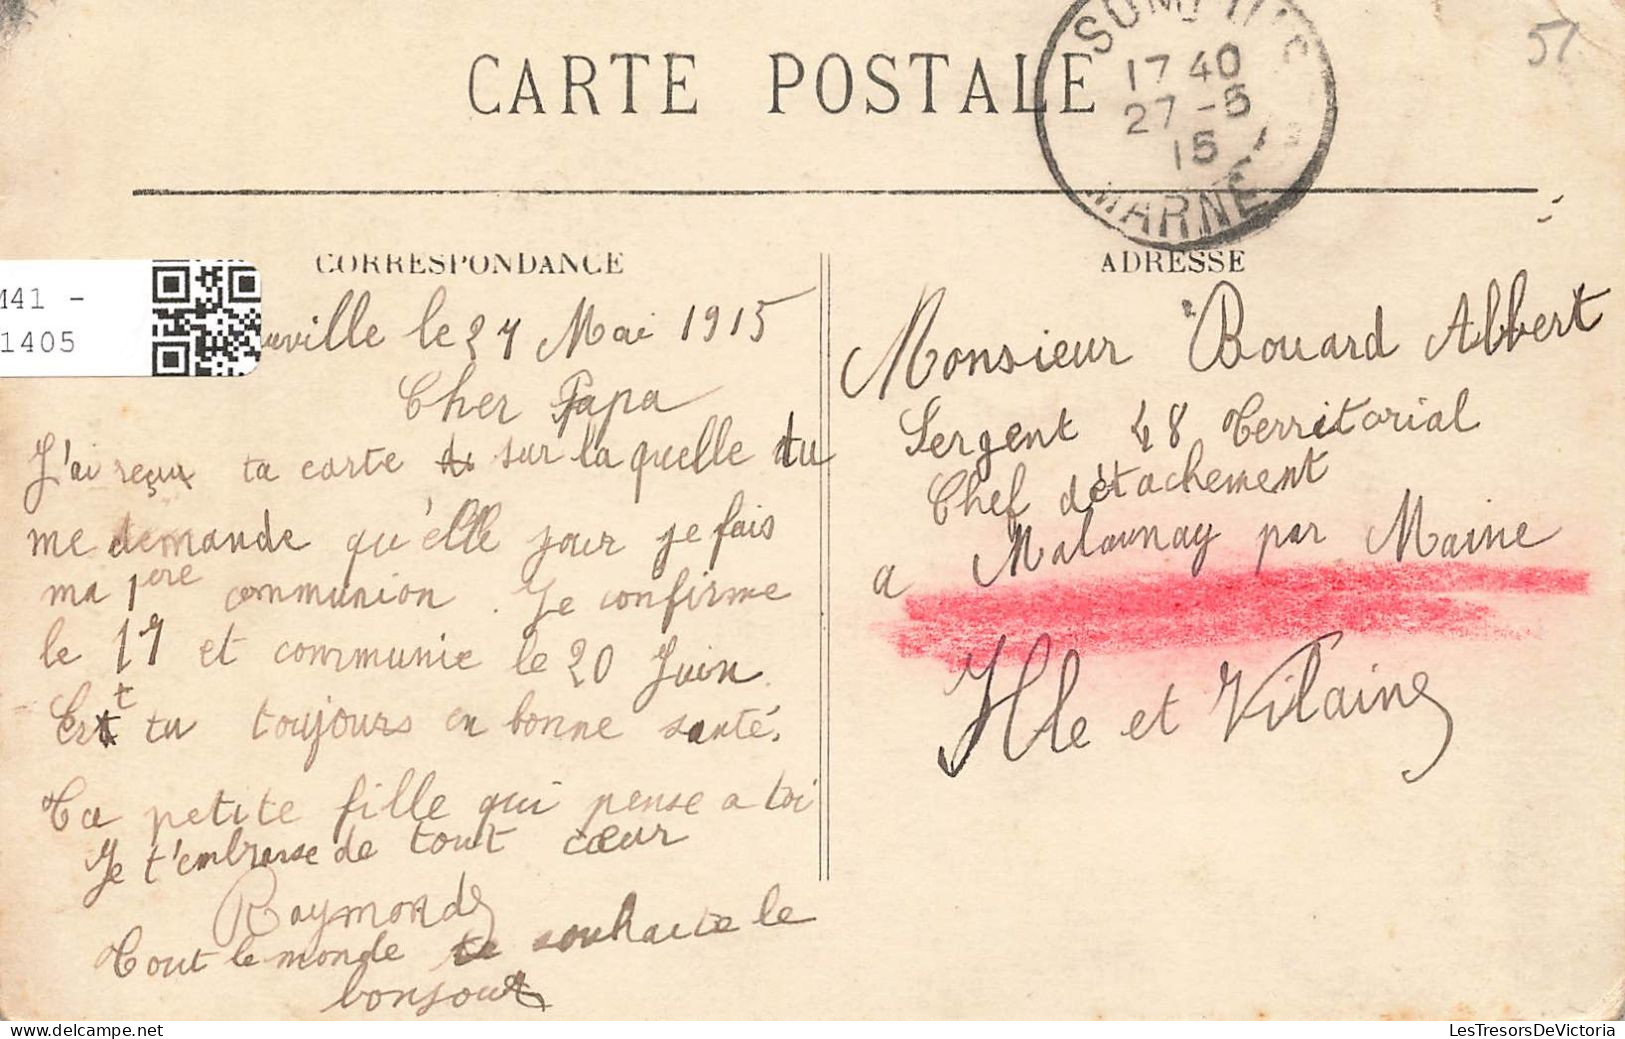 CARTE POSTALE
17 40
27 - 5
15
MARNE
51
CORRESPONDANCE
M41 -
1405
uville le 27 Mai 1915
Cher Papa
J'ai reçux ta carte sur la quelle tu
me demande qu'elle jour je fais
ma 1ère communion. Je confirme
le 17 et communie le 20 Juin.
Est tu toujours en bonne santé.
Ta petite fille qui pense a toi
Je t'embrasse de tout cœur
Raymonde
Tout le monde te souhaite le
bonjour
ADRESSE
Monsieur Bouard Albert
Sergent 48 Territorial
Chef détachement
a Malaunay par Maine
Ille et Vilaine
LesTresorsDeVictoria